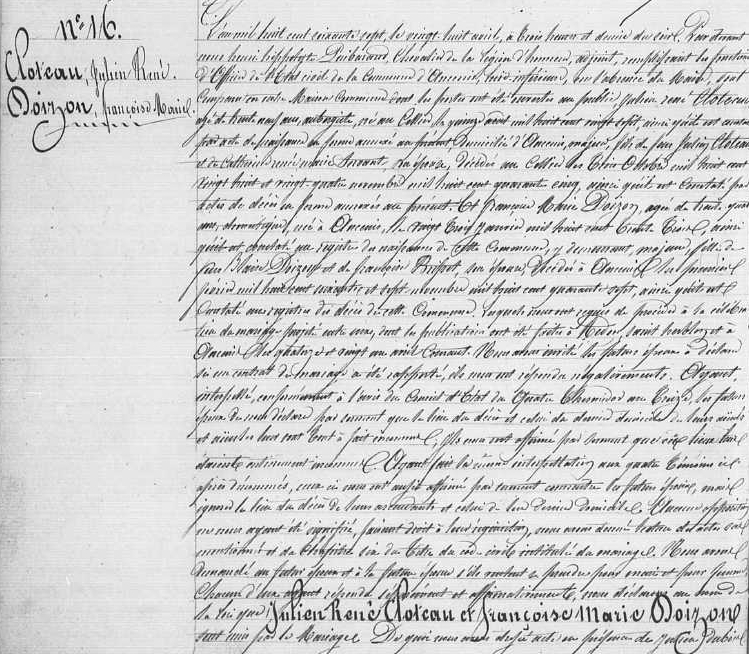 n° 16.
Cloteau, Julien René.
Doizon, françoise Marie.
L'an mil huit cent soixante sept, le vingt huit avril, à trois heures et demie du soir. Par devant
nous henri hippolyte chevalier de la Légion d'honneur, adjoint, remplissant les fonctions
d'Officier de l'Etat civil de la Commune d'Ancenis, loire inférieure, en l'absence du Maire, sont
comparus en cette Mairie Commune dont les portes ont été ouvertes au public, Julien René Cloteau
agé de trente neuf ans, aubergiste, né au Cellier le quinze mil huit cent vingt sept, ainsi qu'il est constaté
par acte de naissance en forme annexé au présent, domicilié d'Ancenis, majeur, fils de feu Julien Cloteau
et de marie son épouse, décédés au Cellier les trois mil huit cent
vingt huit et vingt quatre novembre mil huit cent quarante cinq, ainsi qu'il est constaté par
actes de décès en forme annexés au présent. Et françoise Marie Doizon, agée de trente quatre
ans, domestique, née à Ancenis, le vingt trois janvier mil huit cent trente trois, ainsi
qu'il est constaté au registre des naissances de cette Commune, y demeurant, majeure, fille de
feu Doizon et de françoise son épouse, décédés à Ancenis les premier
mil huit cent et sept novembre mil huit cent quarante sept, ainsi qu'il est
constaté aux registres des décès de cette Commune. Lesquels nous ont requis de procéder à la célébra-
tion du mariage projeté entre eux, dont les publications ont été faites à saint herblon et à
Ancenis les quatorze et vingt un avril courant. Nous avons invité les futurs époux à déclarer
si un contrat de mariage a été rapporté, ils nous ont répondu négativement. Ayant
interpellé, conformément à l'avis du Conseil d'Etat du quatre thermidor an treize, les futurs
époux de nous déclarer par serment que le lieu du décès et celui du dernier domicile de leurs aïeuls
et aïeules leur sont tout à fait inconnus, ils nous ont affirmé par serment que ces lieux leur
étaient entièrement inconnus. Ayant fait la même interpellation aux quatre témoins ci
après dénommés, ceux ci nous ont aussi affirmé par serment connaître les futurs époux, mais
ignorer le lieu du décès de leurs ascendants et celui de leur dernier domicile. Aucune opposition
ne nous ayant été signifiée, faisant droit à leur réquisition, nous avons donné lecture des actes sus
mentionnés et du chapitre six du titre du code civil intitulé du mariage. Nous avons
demandé au futur époux et à la future épouse s'ils veulent se prendre pour mari et pour femme
Chacun d'eux ayant répondu séparément et affirmativement, nous déclarons au nom de
la loi que Julien René Cloteau et françoise Marie Doizon
sont unis par le Mariage. De quoi nous avons dressé acte en présence de